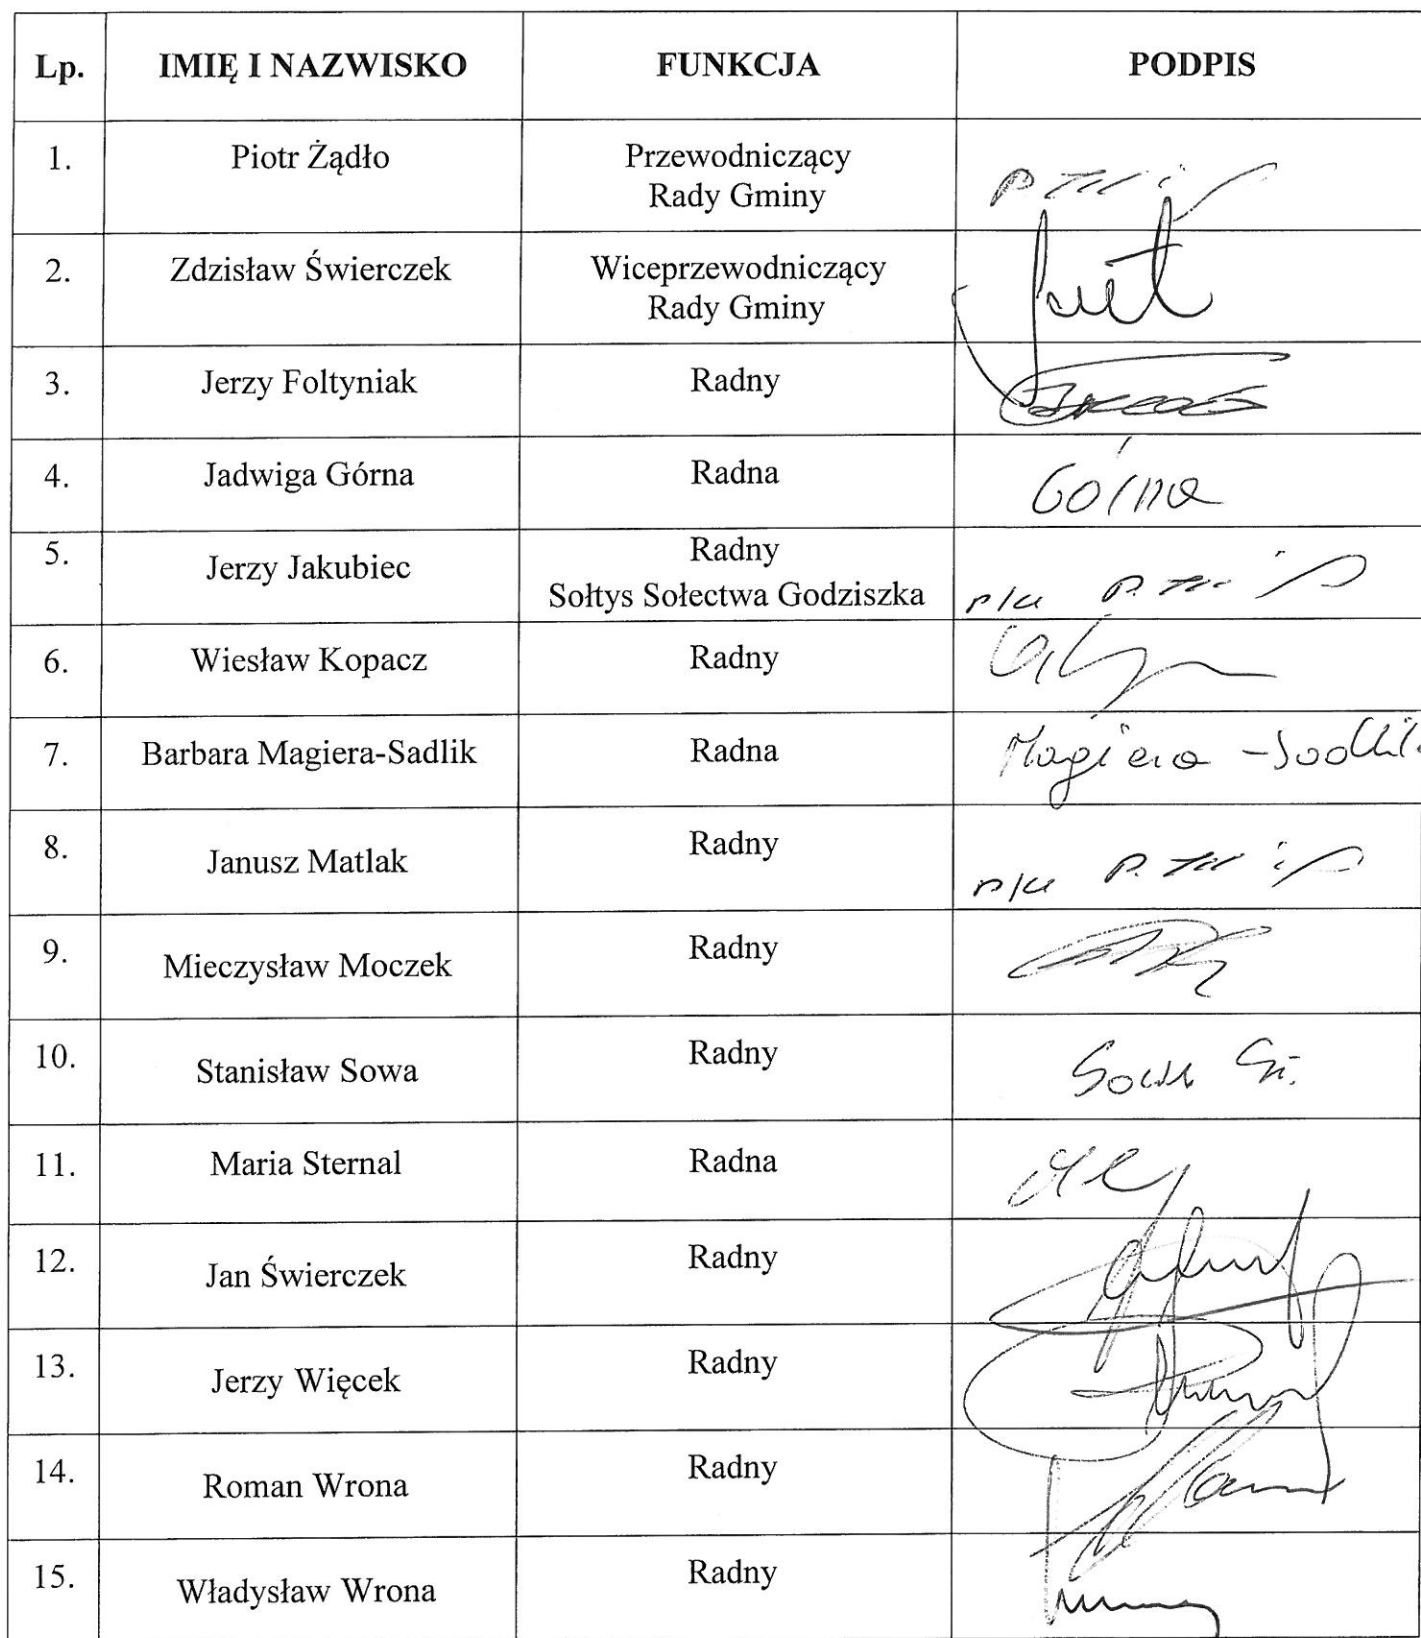 Lp. IMIĘ I NAZWISKO FUNKCJA PODPIS
1. Piotr Żądło Przewodniczący
Rady Gminy
2. Zdzisław Świerczek Wiceprzewodniczący
Rady Gminy
3. Jerzy Foltyniak Radny
4. Jadwiga Górna Radna Górna
5. Jerzy Jakubiec Radny
Sołtys Sołectwa Godziszka
6. Wiesław Kopacz Radny
7. Barbara Magiera-Sadlik Radna Magiera
8. Janusz Matlak Radny
9. Mieczysław Moczek Radny
10. Stanisław Sowa Radny Sowa St.
11. Maria Sternal Radna
12. Jan Świerczek Radny
13. Jerzy Więcek Radny
14. Roman Wrona Radny
15. Władysław Wrona Radny